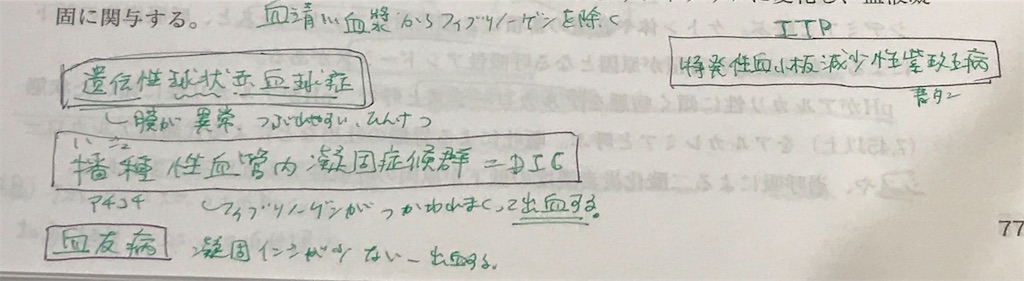 固に関与する。
血清は血漿からフィブリノーゲンを除く
ITP
特発性血小板減少性紫斑病
青タン
遺伝性球状赤血球症
膜が異常、つぶれやすい、ひんけつ
はしゅ
播種性血管内凝固症候群=DIC
アチコチ
フィブリノーゲンがつかわれまくって出血する。
血友病
凝固インシが少ない→出血する。
77